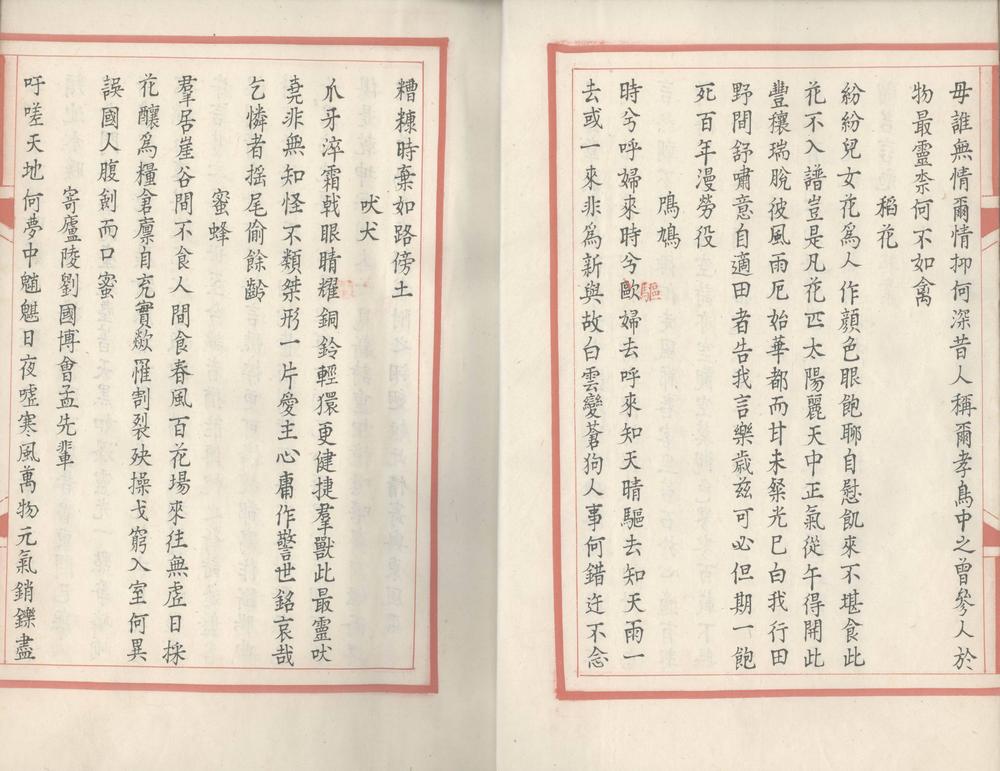 毋誰無情爾情抑何深昔人稱爾孝鳥中之曾參人於
物最靈柰何不如禽
稻花
紛紛兒女花爲人作顔色眼飽聊自慰飢來不堪食此
花不入譜豈是凡花匹太陽麗天中正氣從午得開此
豐穰瑞脫彼風雨厄始華都而甘未粲光已白我行田
野間舒嘯意自適田者告我言樂歲兹可必但期一飽
死百年漫勞役
鳲鳩
時兮呼婦來時兮歐婦去呼來知天晴驅去知天雨一
驅
去或一來非爲新與故白雲變蒼狗人事何錯迕不念
糟糠時棄如路傍土
吠犬
爪牙淬霜戟眼睛耀銅鈴輕獧更健捷羣獸此最靈吠
堯非無知怪不類桀形一片愛主心庸作警世銘哀哉
乞憐者揺尾偷餘齡
蜜蜂
羣居崖谷間不食人間食春風百花場來往無虛日採
花釀爲糧倉廪自充實歘罹割裂殃操戈窮入室何異
誤國人腹劍而口蜜
寄廬陵劉國博會孟先輩
吁嗟天地何夢中魑魅日夜嘘寒風萬物元氣銷鑠盡